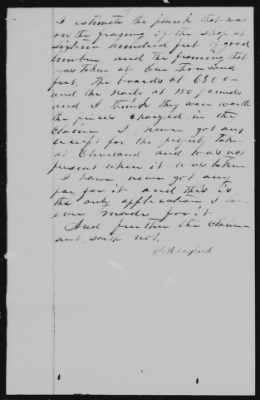 I estimate the plank that was
on the framing of the shop at
sixteen hundred feet of good
lumber and the framing that
was taken at one thousand
feet. The boards at
and the nails at 150 pounds
and I think they were worth
the prices charged in the
claim. I never got any
receipt for the property taken
at Cleveland and was not
present when it was taken
I have never got any
pay for it and this is
the only application I
ever made for it
And further the claim-
ant saith not.